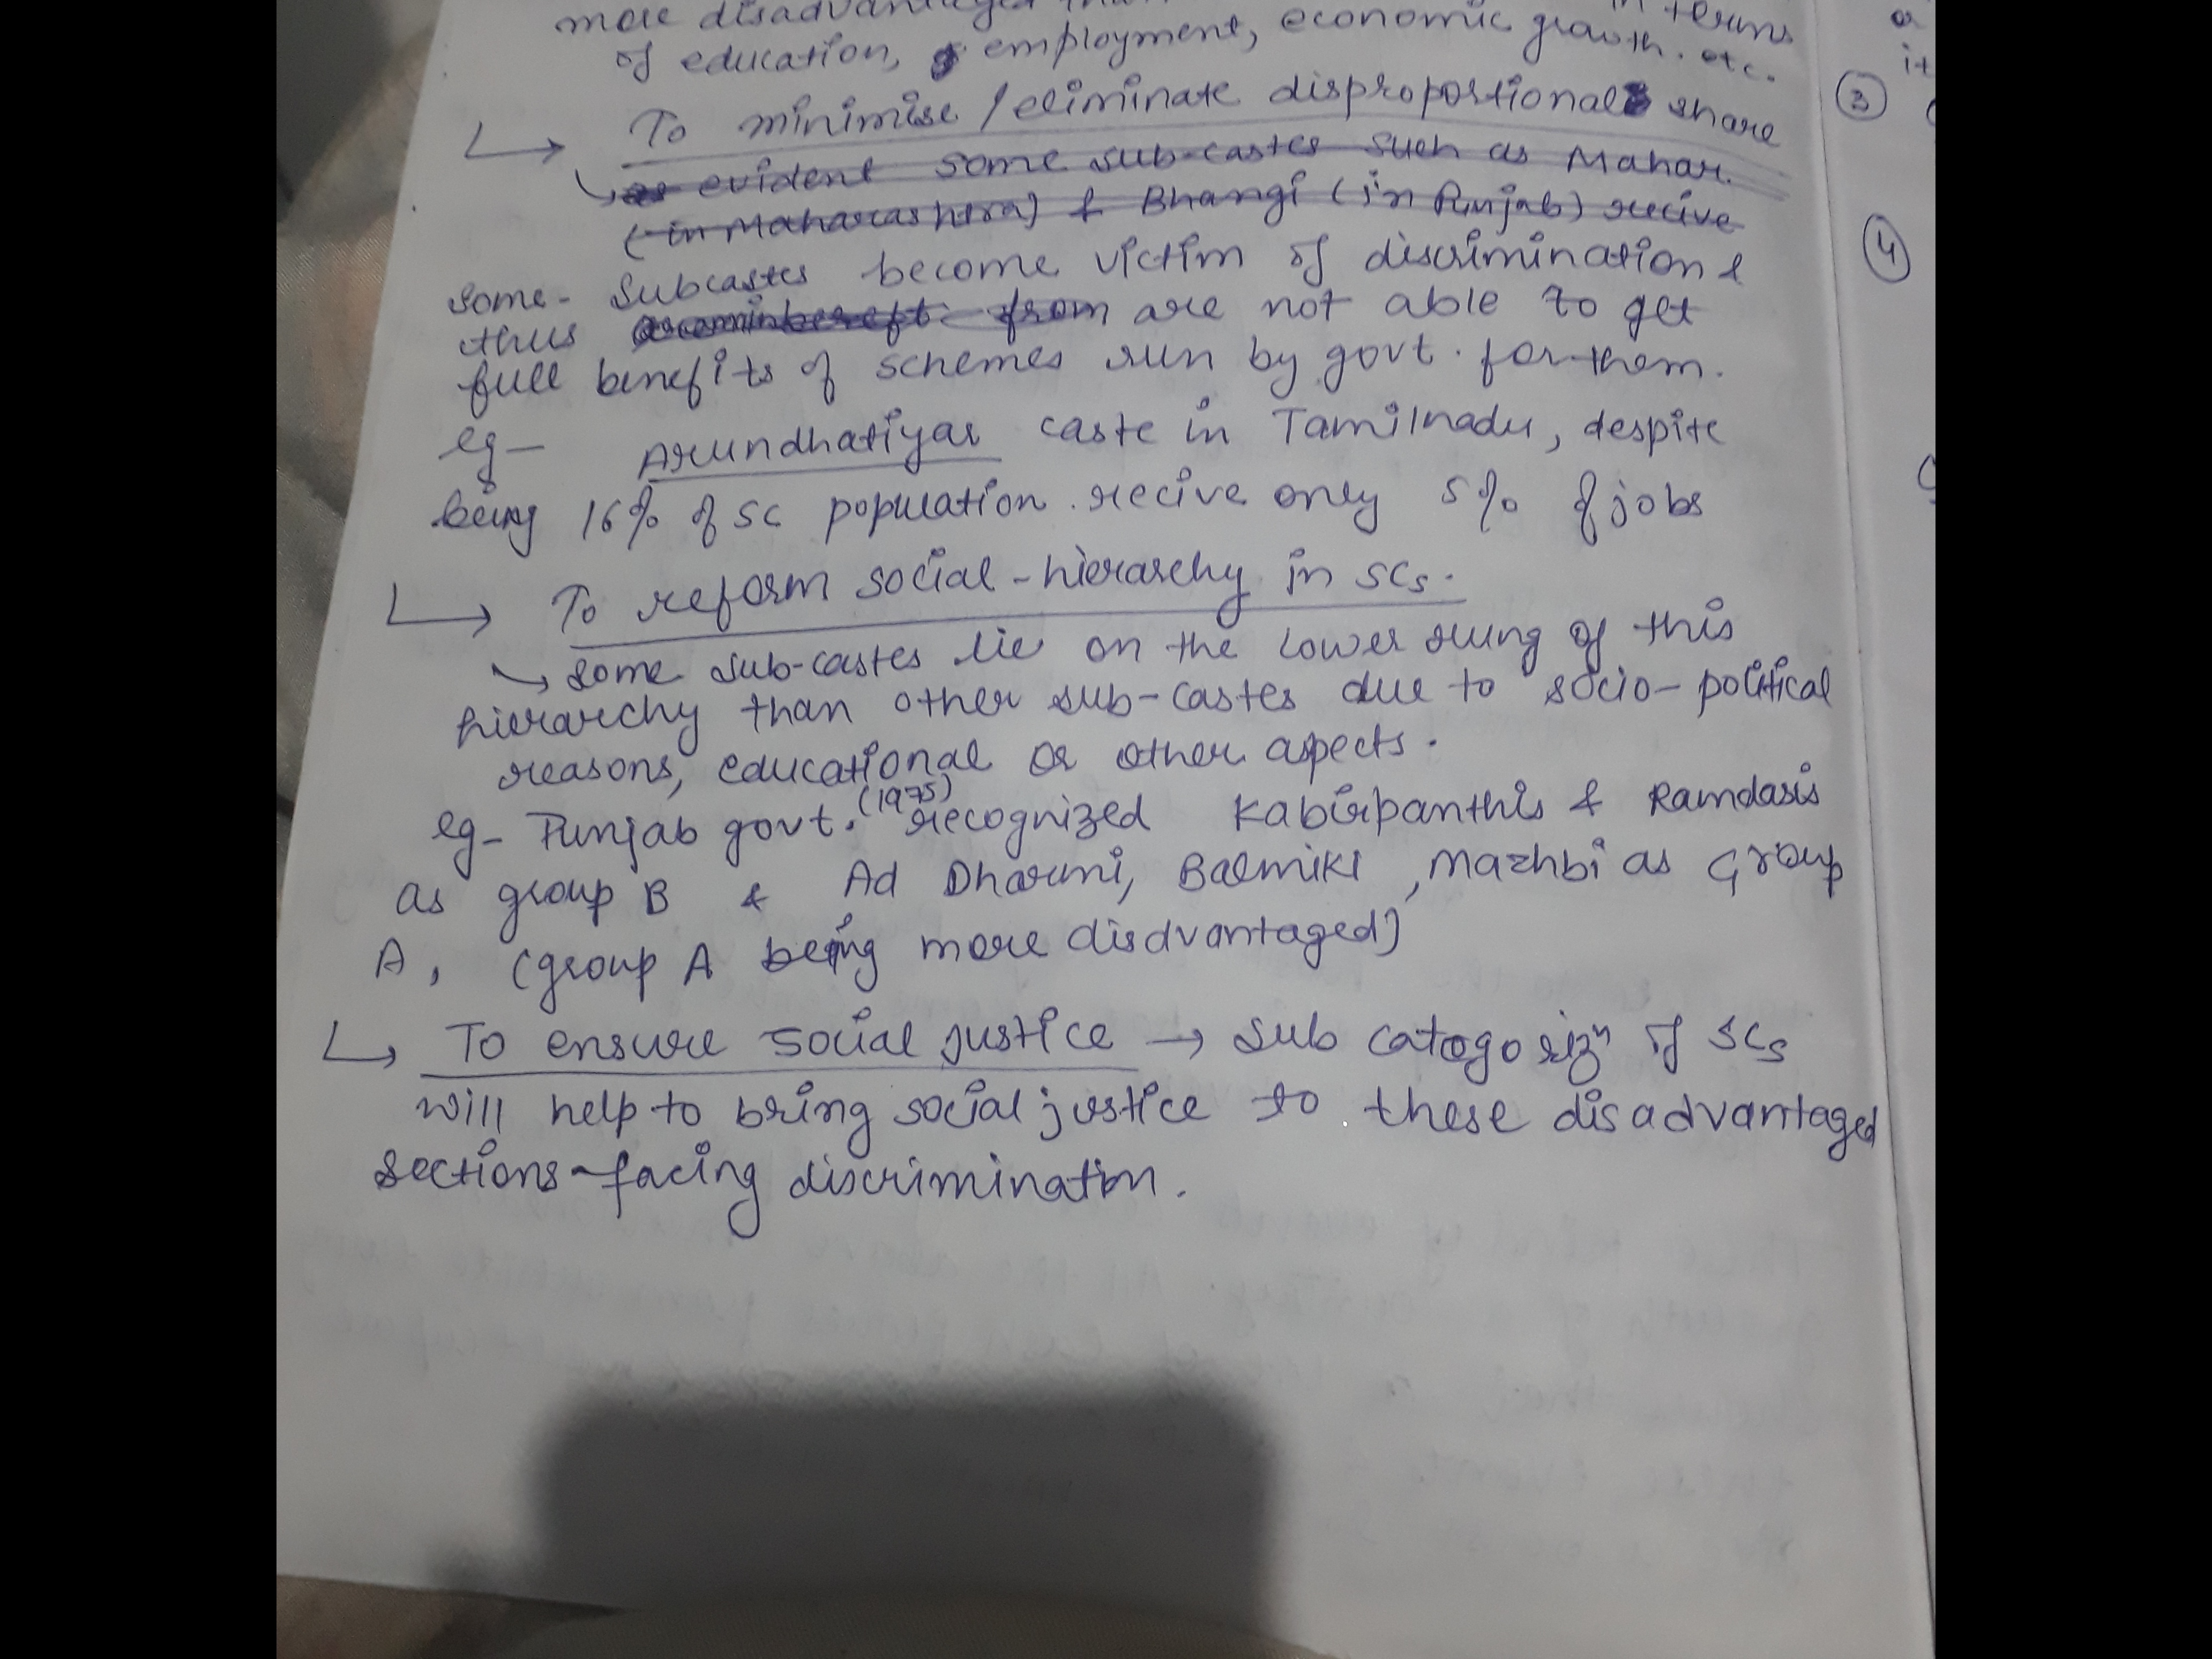 more disadvantaged in terms
of education, employment, economic growth. etc.
To minimise / eliminate disproportional share
as evident some sub-castes such as Mahar.
(in Maharashtra) & Bhangi (in Punjab) recive
some- Subcastes become victim of discrimination &
thus from are not able to get
full benefits of schemes run by govt. for them.
eg- Arundhatiyar caste in Tamilnadu, despite
being 16% of SC population. recive only 5% of jobs
To reform social-hierarchy in SCs.
some sub-castes lie on the lower rung of this
hierarchy than other sub-castes due to socio-political
reasons, educational or other aspects.
eg- Punjab govt. (1975) recognized Kabirpanthis & Ramdasis
as group B & Ad Dharmi, Balmiki, Mazhbi as Group
A, (group A being more disdvantaged)
To ensure social justice → sub catogorizn of SCs
will help to bring social justice to these disadvantaged
sections-facing discrimination.
it
3
4